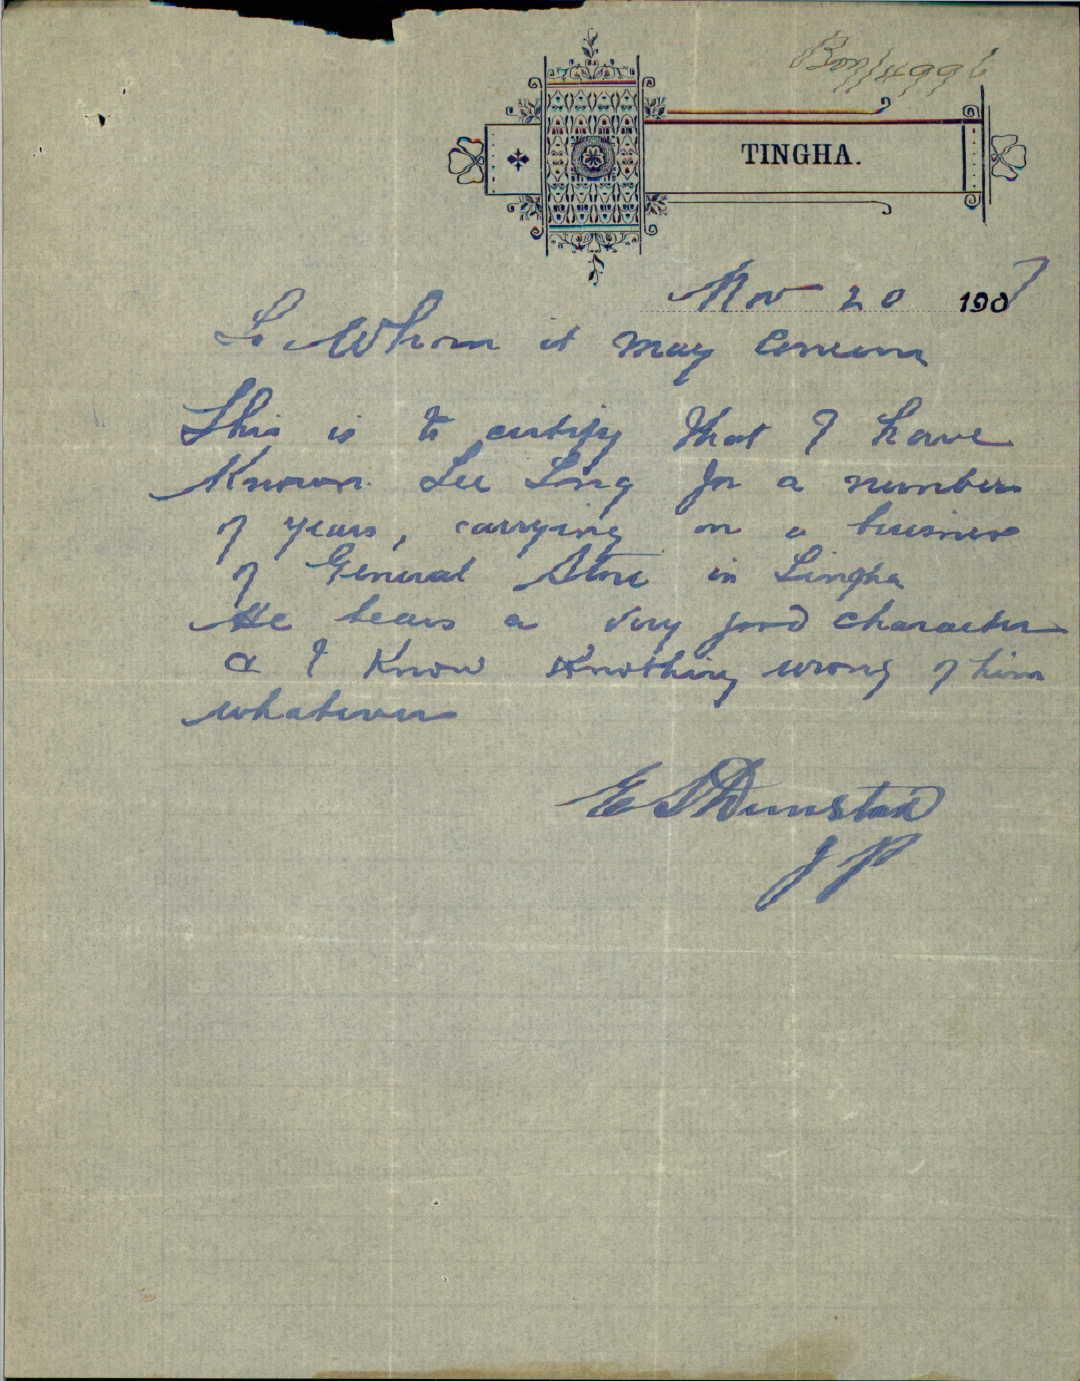 TINGHA.
Nov 20 1907
To Whom it may Concern
This is to certify that I have
Known Lee Long for a number
of years, carrying on a business
of General Store in Tingha
He bears a very good character
& I Know nothing wrong of him
whatever
E S Dunstan
J P